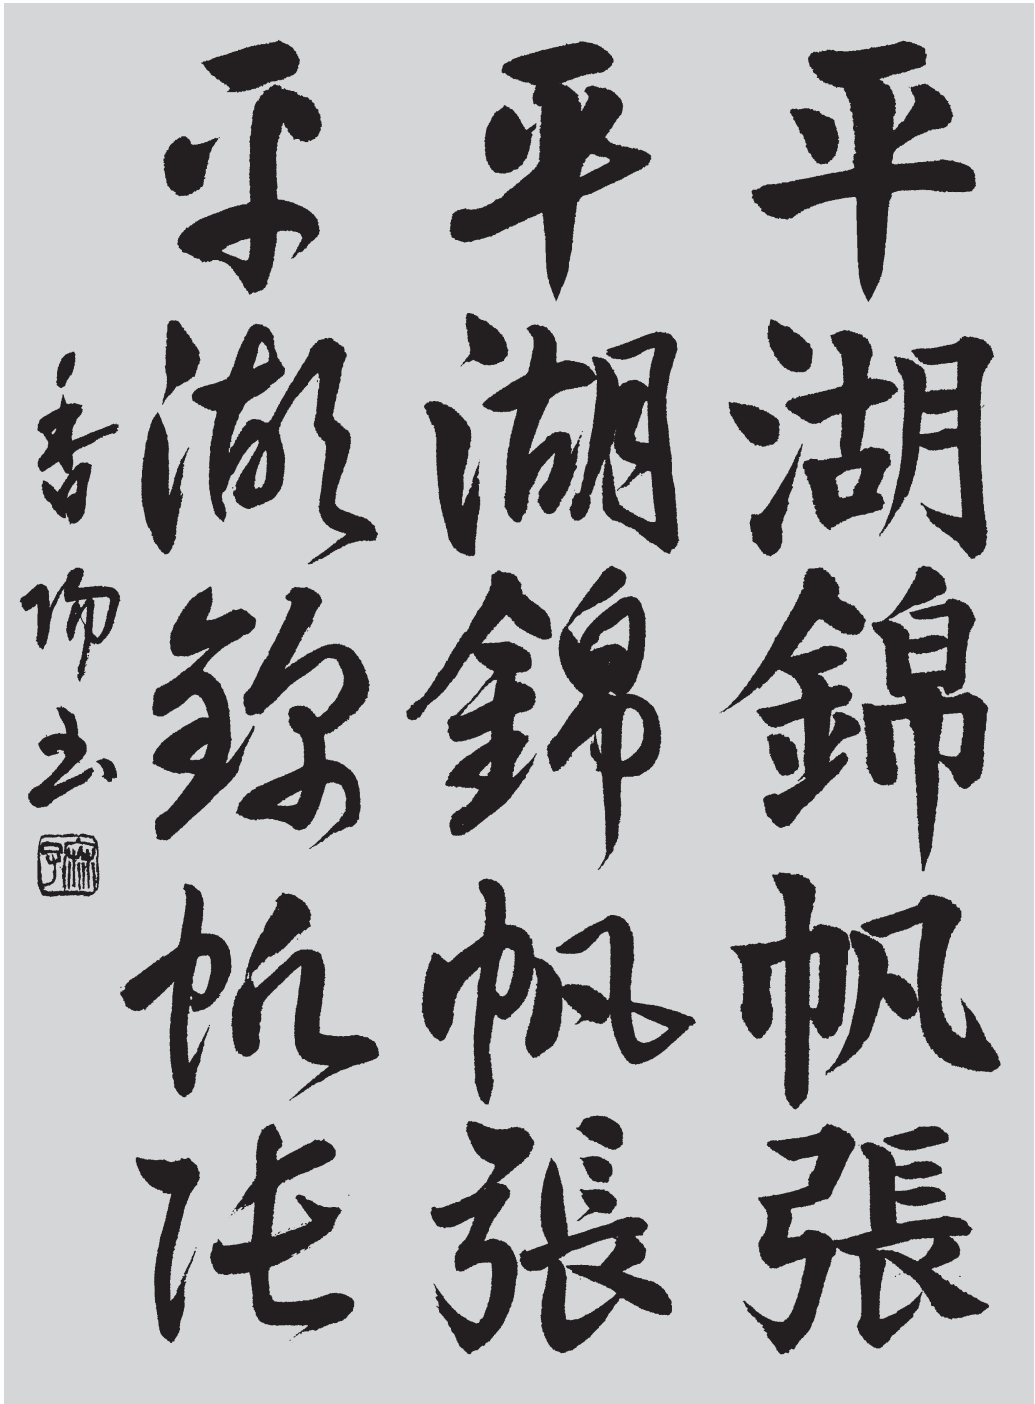 平湖錦帆張
平湖錦帆張
平湖錦帆張
香陽書